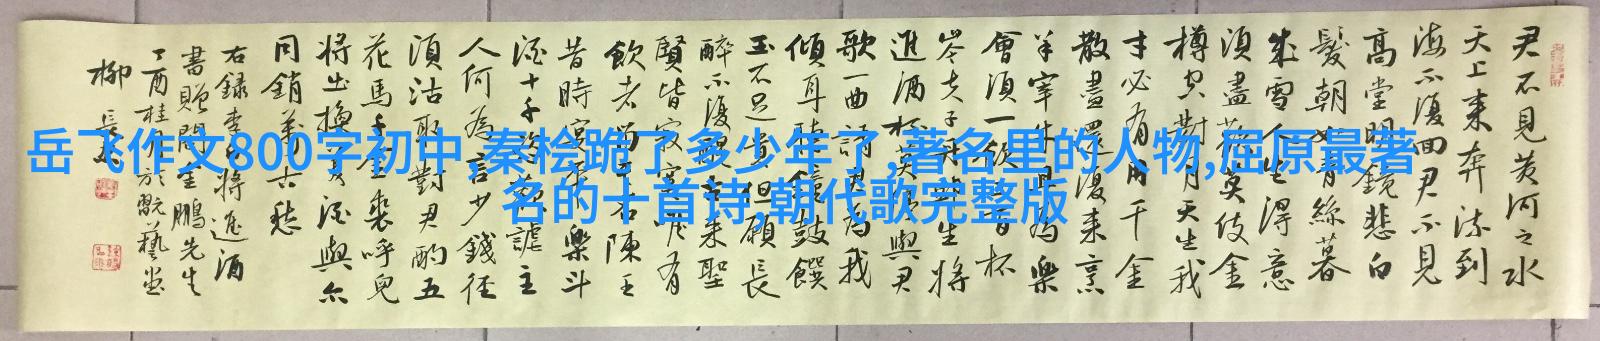 君不見黃河之水
天上来奔流到
海不復回君不見
高堂明鏡悲白
髮朝如青絲暮
成雪人生得意
須盡歡莫使金
樽空對月天生我
才必有用千金
散盡還復来烹
羊宰牛且為樂
會須一飲三百杯
岑夫子丹丘生將
進酒杯莫停與君
歌一曲請君為我
傾耳聽鐘鼓饌
玉不足貴但願長
醉不復醒古来聖
賢皆寂寞唯有
飲者留其名陳王
昔時宴平樂斗
酒十千恣歡謔主
人何為言少錢径
須沽取對君酌五
花馬千金裘呼兒
將出換美酒與尔
同銷萬古愁
右録李白將進酒
書贈閆金鵬先生
丁酉桂月於翫藝堂
柳長
岳飞作文800字初中,秦桧跪了多少年了,著名里的人物,屈原最著
名的十首诗,朝代歌完整版